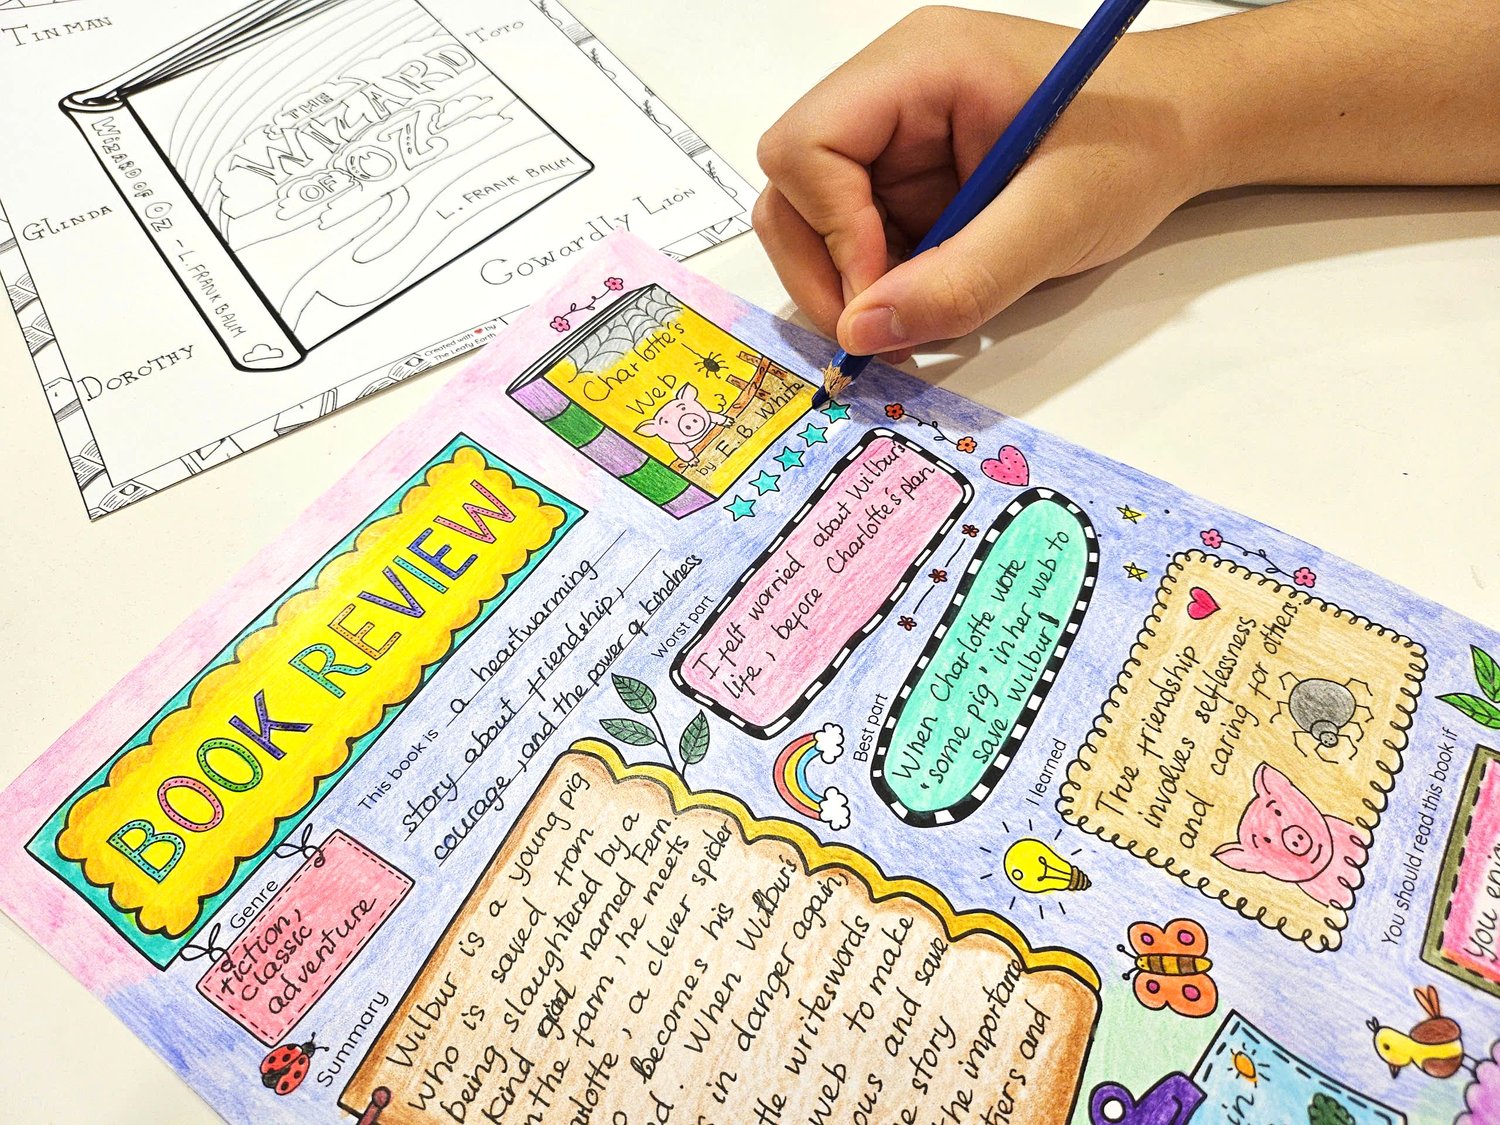 TINMAN
TOTO
THE
WIZARD
OF OZ
L. FRANK BAUM
WIZARD OF OZ - L. FRANK BAUM
GLINDA
GOWARDLY LION
DOROTHY
Created with by
The Leafy Earth
Charlotte's
Web
by E. B. White
BOOK REVIEW
This book is a heartwarming
story about friendship,
courage, and the power of kindness
Genre
fiction,
classic
adventure
Worst part
I felt worried about Wilbur's
life, before Charlotte's plan
Best part
When Charlotte wrote
'some pig' in her web to
save Wilbur!
I learned
True friendship
involves selflessness
and caring for others.
You should read this book if
You enj
Summary
Wilbur is a young pig
who is saved from
being slaughtered by a
kind girl named Fern
n the farm, he meets
arlotte, a clever spider
o becomes his
d. When Wilbur's
s in danger again,
tle writes words
web to make
ous and save
e story
he importance
thers and
in